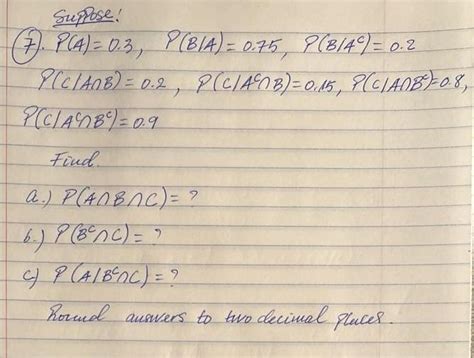 Suppose!
7. P(A)=0.3, P(B/A)=0.75, P(B/Aᶜ)=0.2
P(C/A∩B)=0.2, P(C/Aᶜ∩B)=0.15, P(C/A∩Bᶜ)=0.8,
P(C/Aᶜ∩Bᶜ)=0.9
Find.
a.) P(A∩B∩C)=?
b.) P(Bᶜ∩C)=?
c) P(A/Bᶜ∩C)=?
Round answers to two decimal places.